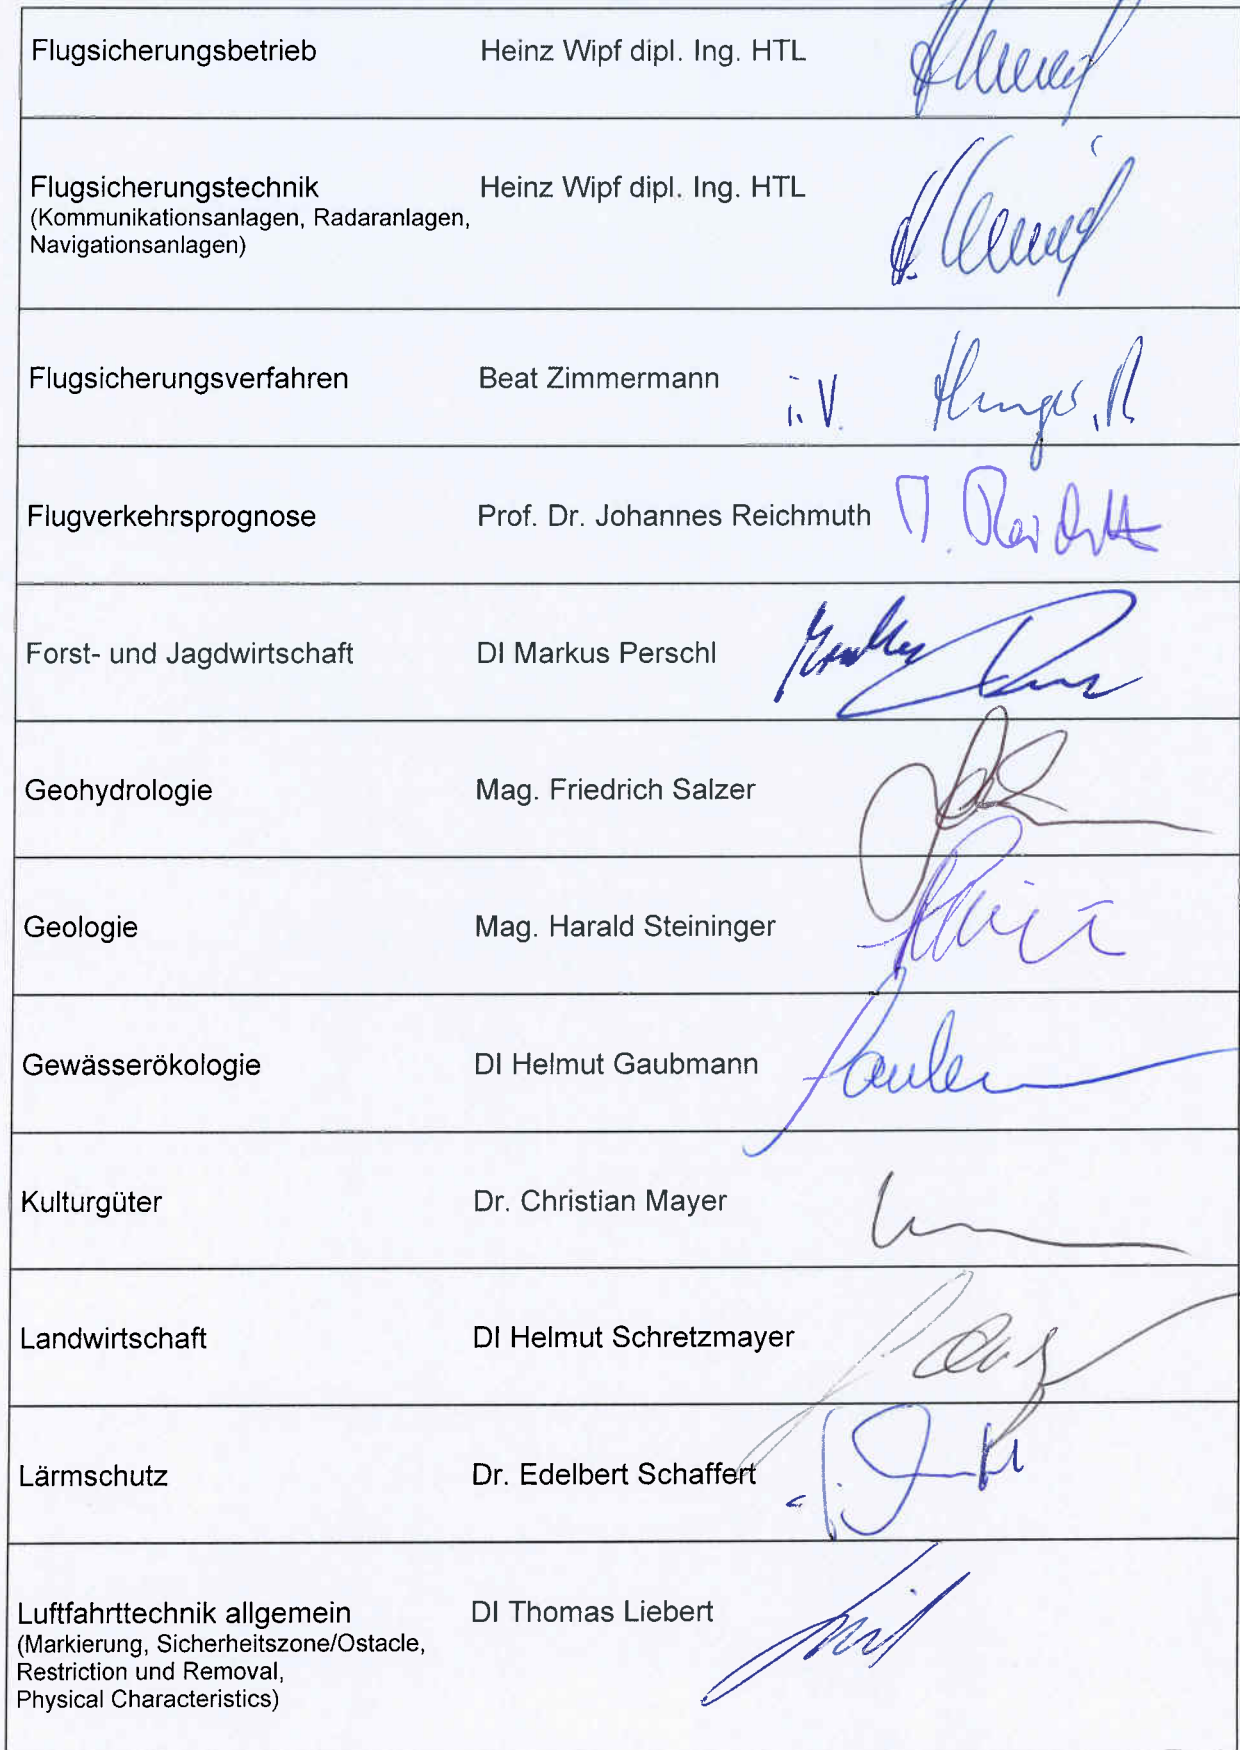 Flugsicherungsbetrieb Heinz Wipf dipl. Ing. HTL
Flugsicherungstechnik Heinz Wipf dipl. Ing. HTL
(Kommunikationsanlagen, Radaranlagen,
Navigationsanlagen)
Flugsicherungsverfahren Beat Zimmermann i.V.
Flugverkehrsprognose Prof. Dr. Johannes Reichmuth
Forst- und Jagdwirtschaft DI Markus Perschl
Geohydrologie Mag. Friedrich Salzer
Geologie Mag. Harald Steininger
Gewässerökologie DI Helmut Gaubmann
Kulturgüter Dr. Christian Mayer
Landwirtschaft DI Helmut Schretzmayer
Lärmschutz Dr. Edelbert Schaffert
Luftfahrttechnik allgemein DI Thomas Liebert
(Markierung, Sicherheitszone/Ostacle,
Restriction und Removal,
Physical Characteristics)